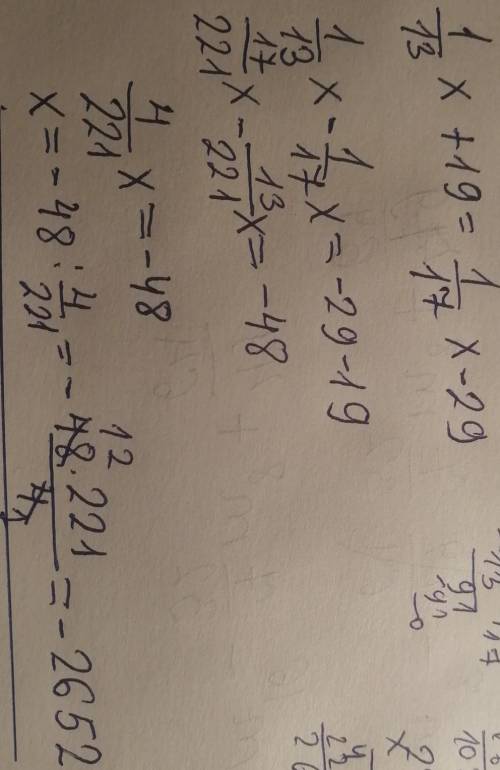 1/13 x + 19 = 1/17 x - 29
1/13 x - 1/17 x = -29-19
17/221 x - 13/221 x = -48
4/221 x = -48
x = -48 : 4/221 = - 48 12 · 221 / 4 1 = -2652